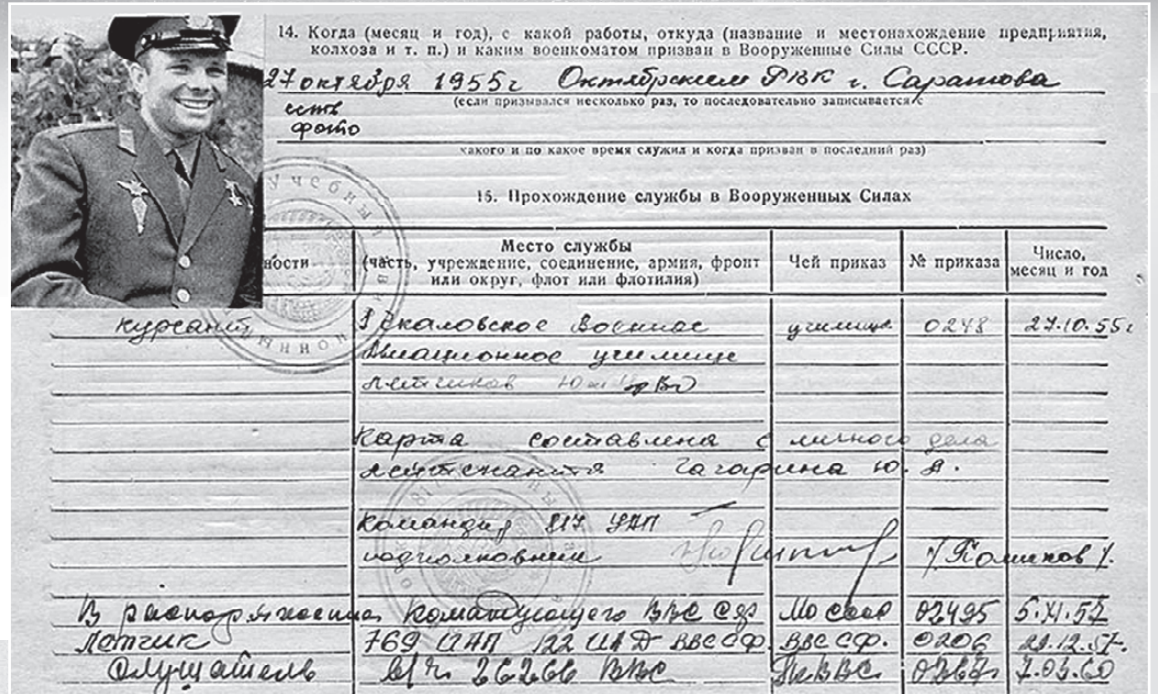 14. Когда (месяц и год), с какой работы, откуда (название и местонахождение предприятия,
колхоза и т. п.) и каким военкоматом призван в Вооруженные Силы СССР.
27 октября 1955г Октябрьским РВК г. Саратова
(если призывался несколько раз, то последовательно записывается с
есть
фото
какого и по какое время служил и когда призван в последний раз)
15. Прохождение службы в Вооруженных Силах
ности
Место службы
(часть, учреждение, соединение, армия, фронт
или округ, флот или флотилия)
Чей приказ
№ приказа
Число,
месяц и год
курсант 1 Чкаловское Военное училище 0248 27.10.55г
Авиационное училище
летчиков
Карта составлена с личного дела
лейтенанта Гагарина Ю. А.
Командир 817 УАП
подполковник /Поликов/.
В распоряжение Командующего ВВС СФ МО СССР 02495 5.XI.57
Летчик 769 ИАП 122 ИАД ВВС СФ. ВВС СФ. 0206 29.12.57.
Слушатель в/ч 26266 ВВС 7.03.60